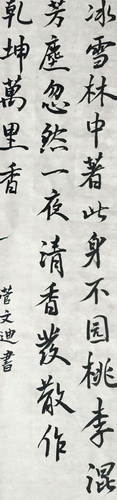 冰雪林中著此身不同桃李混
芳塵忽然一夜清香發散作
乾坤萬里香
菅文迪書